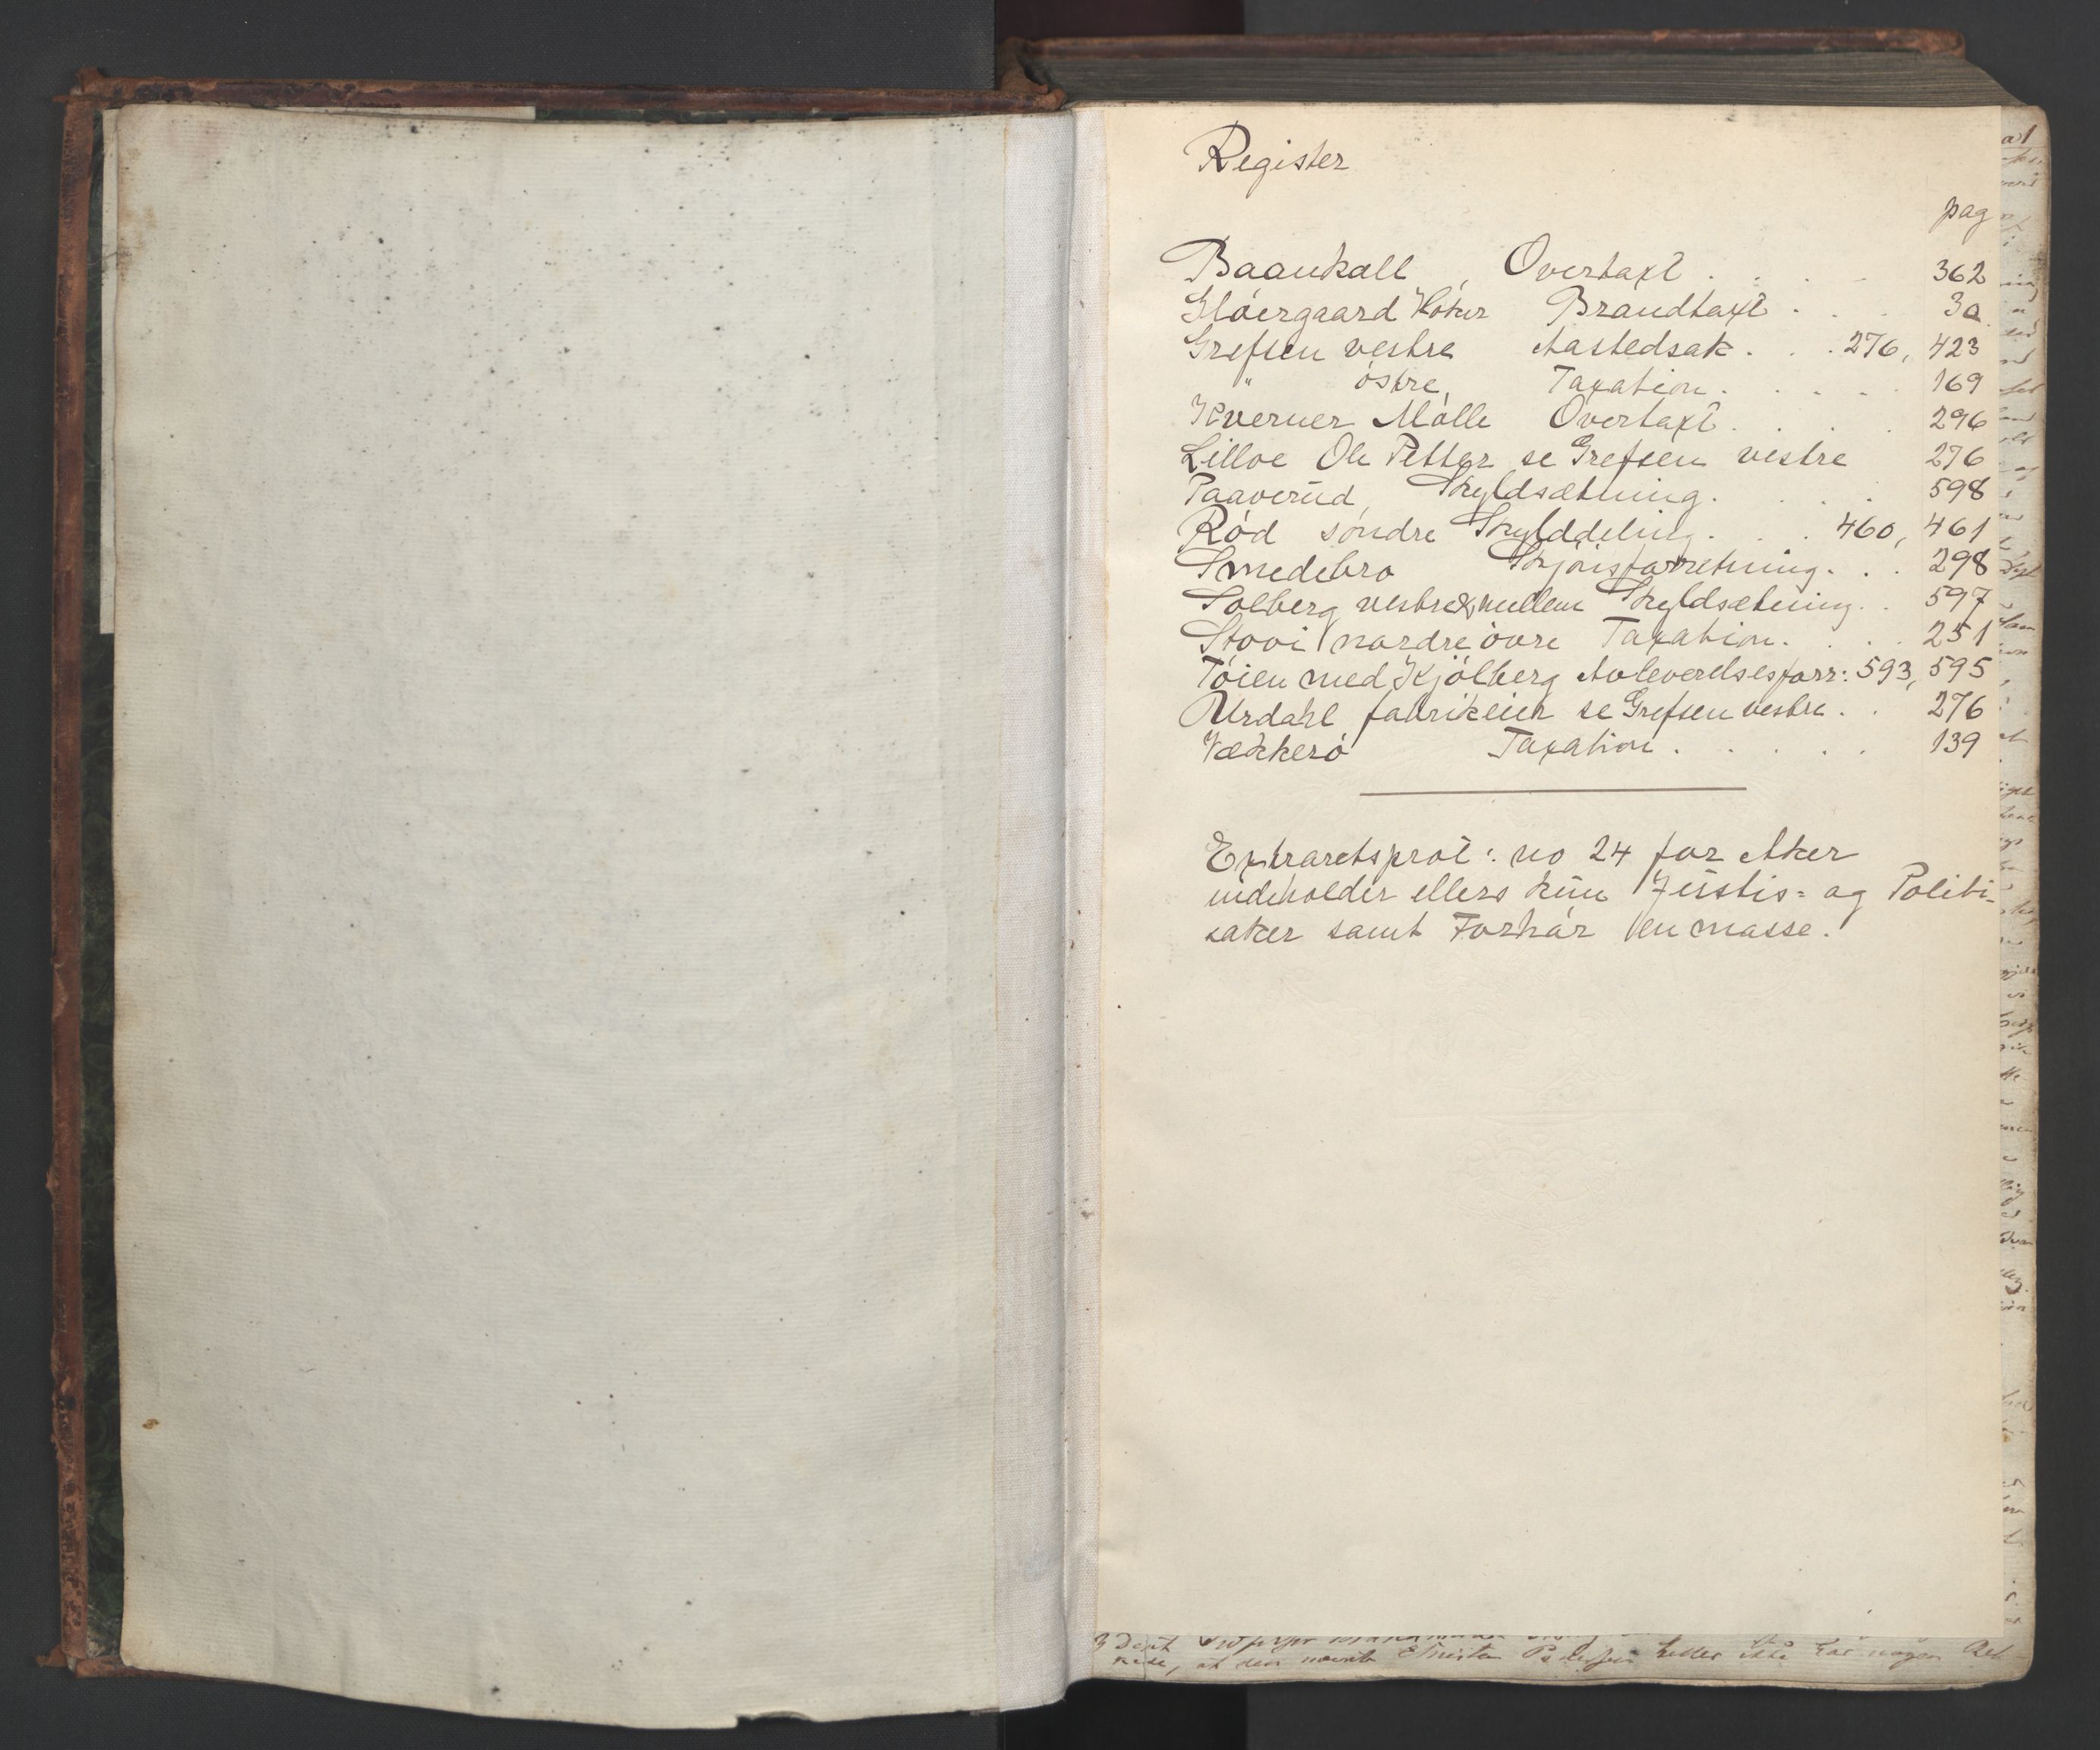 Register
pag
Baankall, Overtaxt . . . . 362
Gláergaard Brandtaxt . . . 3a
Grefsen vestre Aastedsak . . . 276, 423
" östre, Taxation . . . . 169
Kverner Mölle Overtaxt . . . . 296
Lilloe Ole Petter se Grefsen vestre 276
Paaverud, Skyldsætning . . . . 598
Röd söndre Skylddeling . . . 460, 461
Smedebro Skjönsforretning . . . 298
Solberg vestre & mellem Skyldsætning . . 597
Stovi nordre övre Taxation . . . . 251
Töien med Kjölberg Avleverelsesforr: 593, 595
Urdahl fabrikeier se Grefsen vestre . . 276
Vækkerö Taxation . . . . . 139
Extraretsprot: no 24 for Aker
indeholder ellers kun Justis= og Politi-
saker samt Forhör en masse.